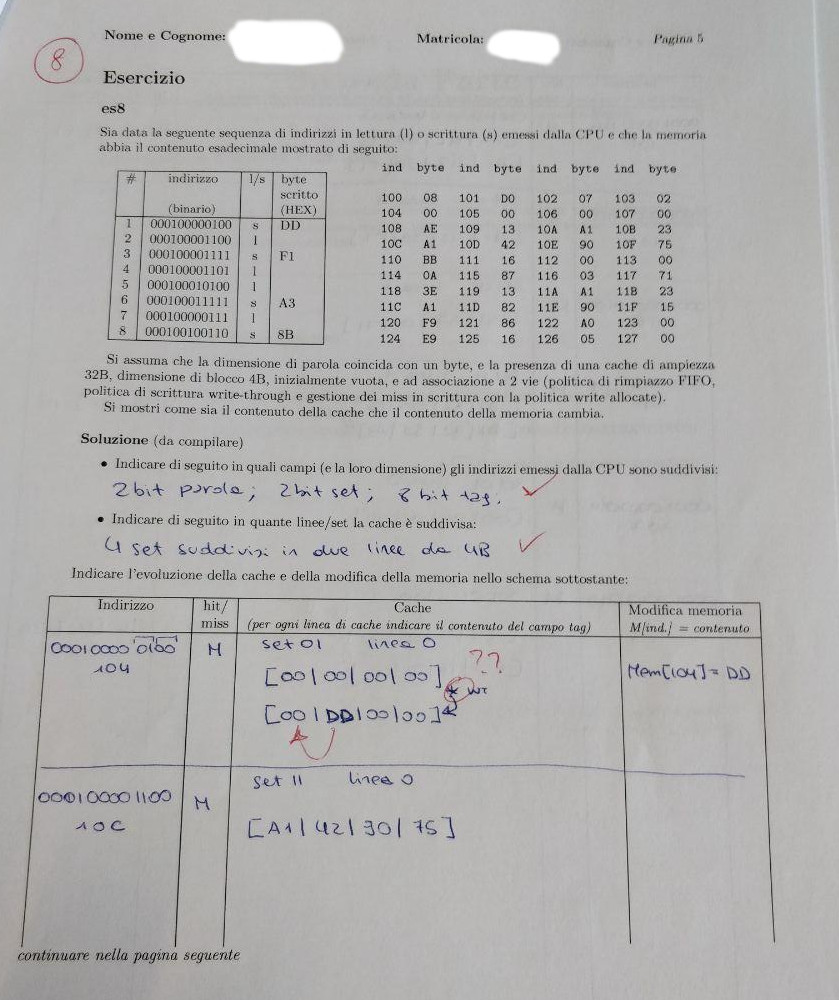 Nome e Cognome: Matricola: Pagina 5
8
Esercizio
es8
Sia data la seguente sequenza di indirizzi in lettura (l) o scrittura (s) emessi dalla CPU e che la memoria
abbia il contenuto esadecimale mostrato di seguito:
# indirizzo (binario) l/s byte scritto (HEX)
1 000100000100 s DD
2 000100001100 l
3 000100001111 s F1
4 000100001101 l
5 000100010100 l
6 000100011111 s A3
7 000100000111 l
8 000100100110 s 8B
ind byte ind byte ind byte ind byte
100 08 101 D0 102 07 103 02
104 00 105 00 106 00 107 00
108 AE 109 13 10A A1 10B 23
10C A1 10D 42 10E 90 10F 75
110 BB 111 16 112 00 113 00
114 0A 115 87 116 03 117 71
118 3E 119 13 11A A1 11B 23
11C A1 11D 82 11E 90 11F 15
120 F9 121 86 122 A0 123 00
124 E9 125 16 126 05 127 00
Si assuma che la dimensione di parola coincida con un byte, e la presenza di una cache di ampiezza
32B, dimensione di blocco 4B, inizialmente vuota, e ad associazione a 2 vie (politica di rimpiazzo FIFO,
politica di scrittura write-through e gestione dei miss in scrittura con la politica write allocate).
Si mostri come sia il contenuto della cache che il contenuto della memoria cambia.
Soluzione (da compilare)
• Indicare di seguito in quali campi (e la loro dimensione) gli indirizzi emessi dalla CPU sono suddivisi:
2 bit parola; 2 bit set; 8 bit tag.
• Indicare di seguito in quante linee/set la cache è suddivisa:
4 set suddivisi in due linee da 4B
Indicare l'evoluzione della cache e della modifica della memoria nello schema sottostante:
Indirizzo hit/ Cache Modifica memoria
miss (per ogni linea di cache indicare il contenuto del campo tag) M[ind.] = contenuto
000100000100 M set 01 linea 0
104 [00|00|00|00] ?? Mem[104]= DD
WT
[00|DD|00|00]
set 11 linea 0
000100001100 M
10C [A1|42|90|75]
continuare nella pagina seguente